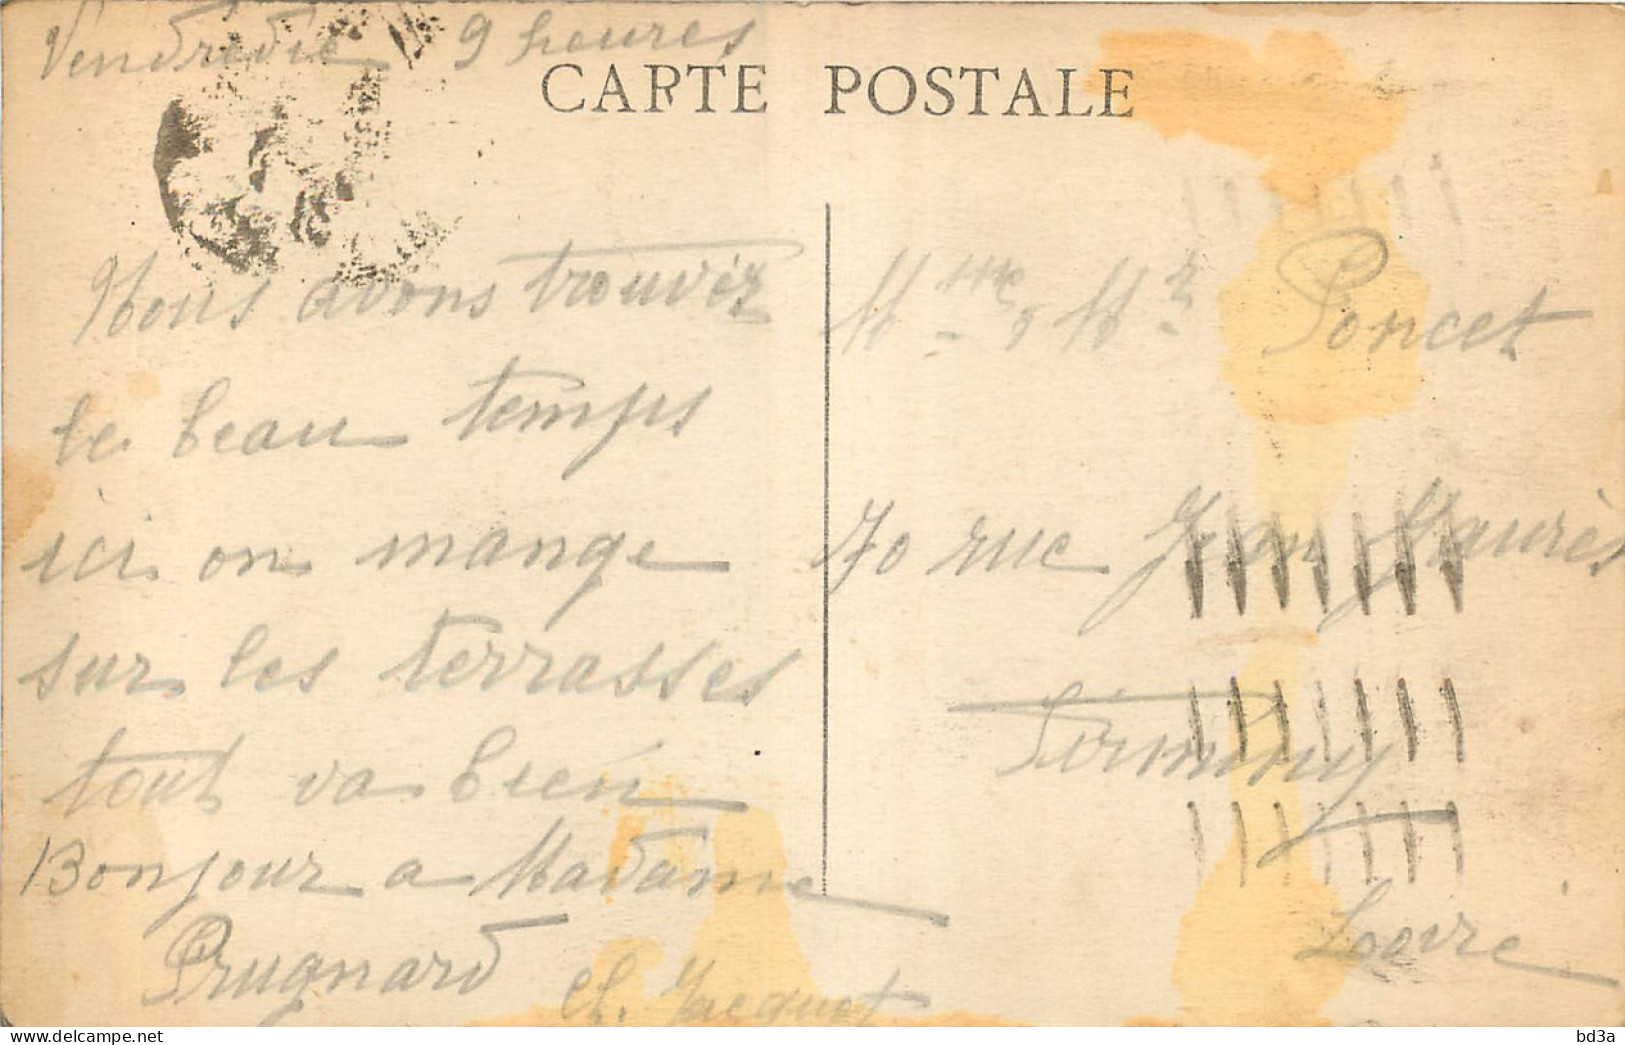 Vendredie 9 heures
CARTE POSTALE
Nous avons trouvéz
le beau temps
ici on mange
sur les terrasses
tout va bien
Bonjour a Madame
Prugnard
Cl. Jacquet
Mme, Mr Poncet
70 rue Jean Jaurès
Firminy
Loire
bd3a